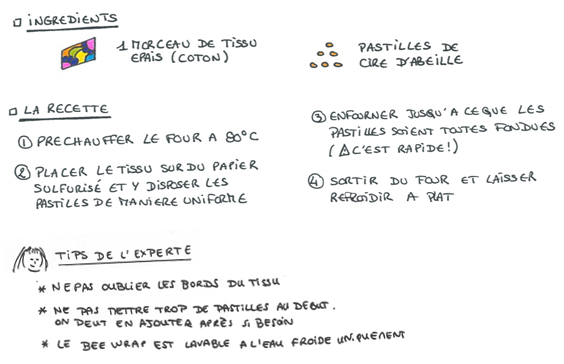 INGREDIENTS
1 MORCEAU DE TISSU
EPAIS (COTON)
PASTILLES DE
CIRE D'ABEILLE
LA RECETTE
① PRECHAUFFER LE FOUR A 80°C
② PLACER LE TISSU SUR DU PAPIER
SULFURISÉ ET Y DISPOSER LES
PASTILES DE MANIERE UNIFORME
③ ENFOURNER JUSQU'A CE QUE LES
PASTILLES SOIENT TOUTES FONDUES
(⚠ C'EST RAPIDE!)
④ SORTIR DU FOUR ET LAISSER
REFROIDIR A PLAT
TIPS DE L'EXPERTE
* NE PAS OUBLIER LES BORDS DU TISSU
* NE PAS METTRE TROP DE PASTILLES AU DEBUT.
ON PEUT EN AJOUTER APRÈS SI BESOIN
* LE BEE WRAP EST LAVABLE A L'EAU FROIDE UNIQUEMENT